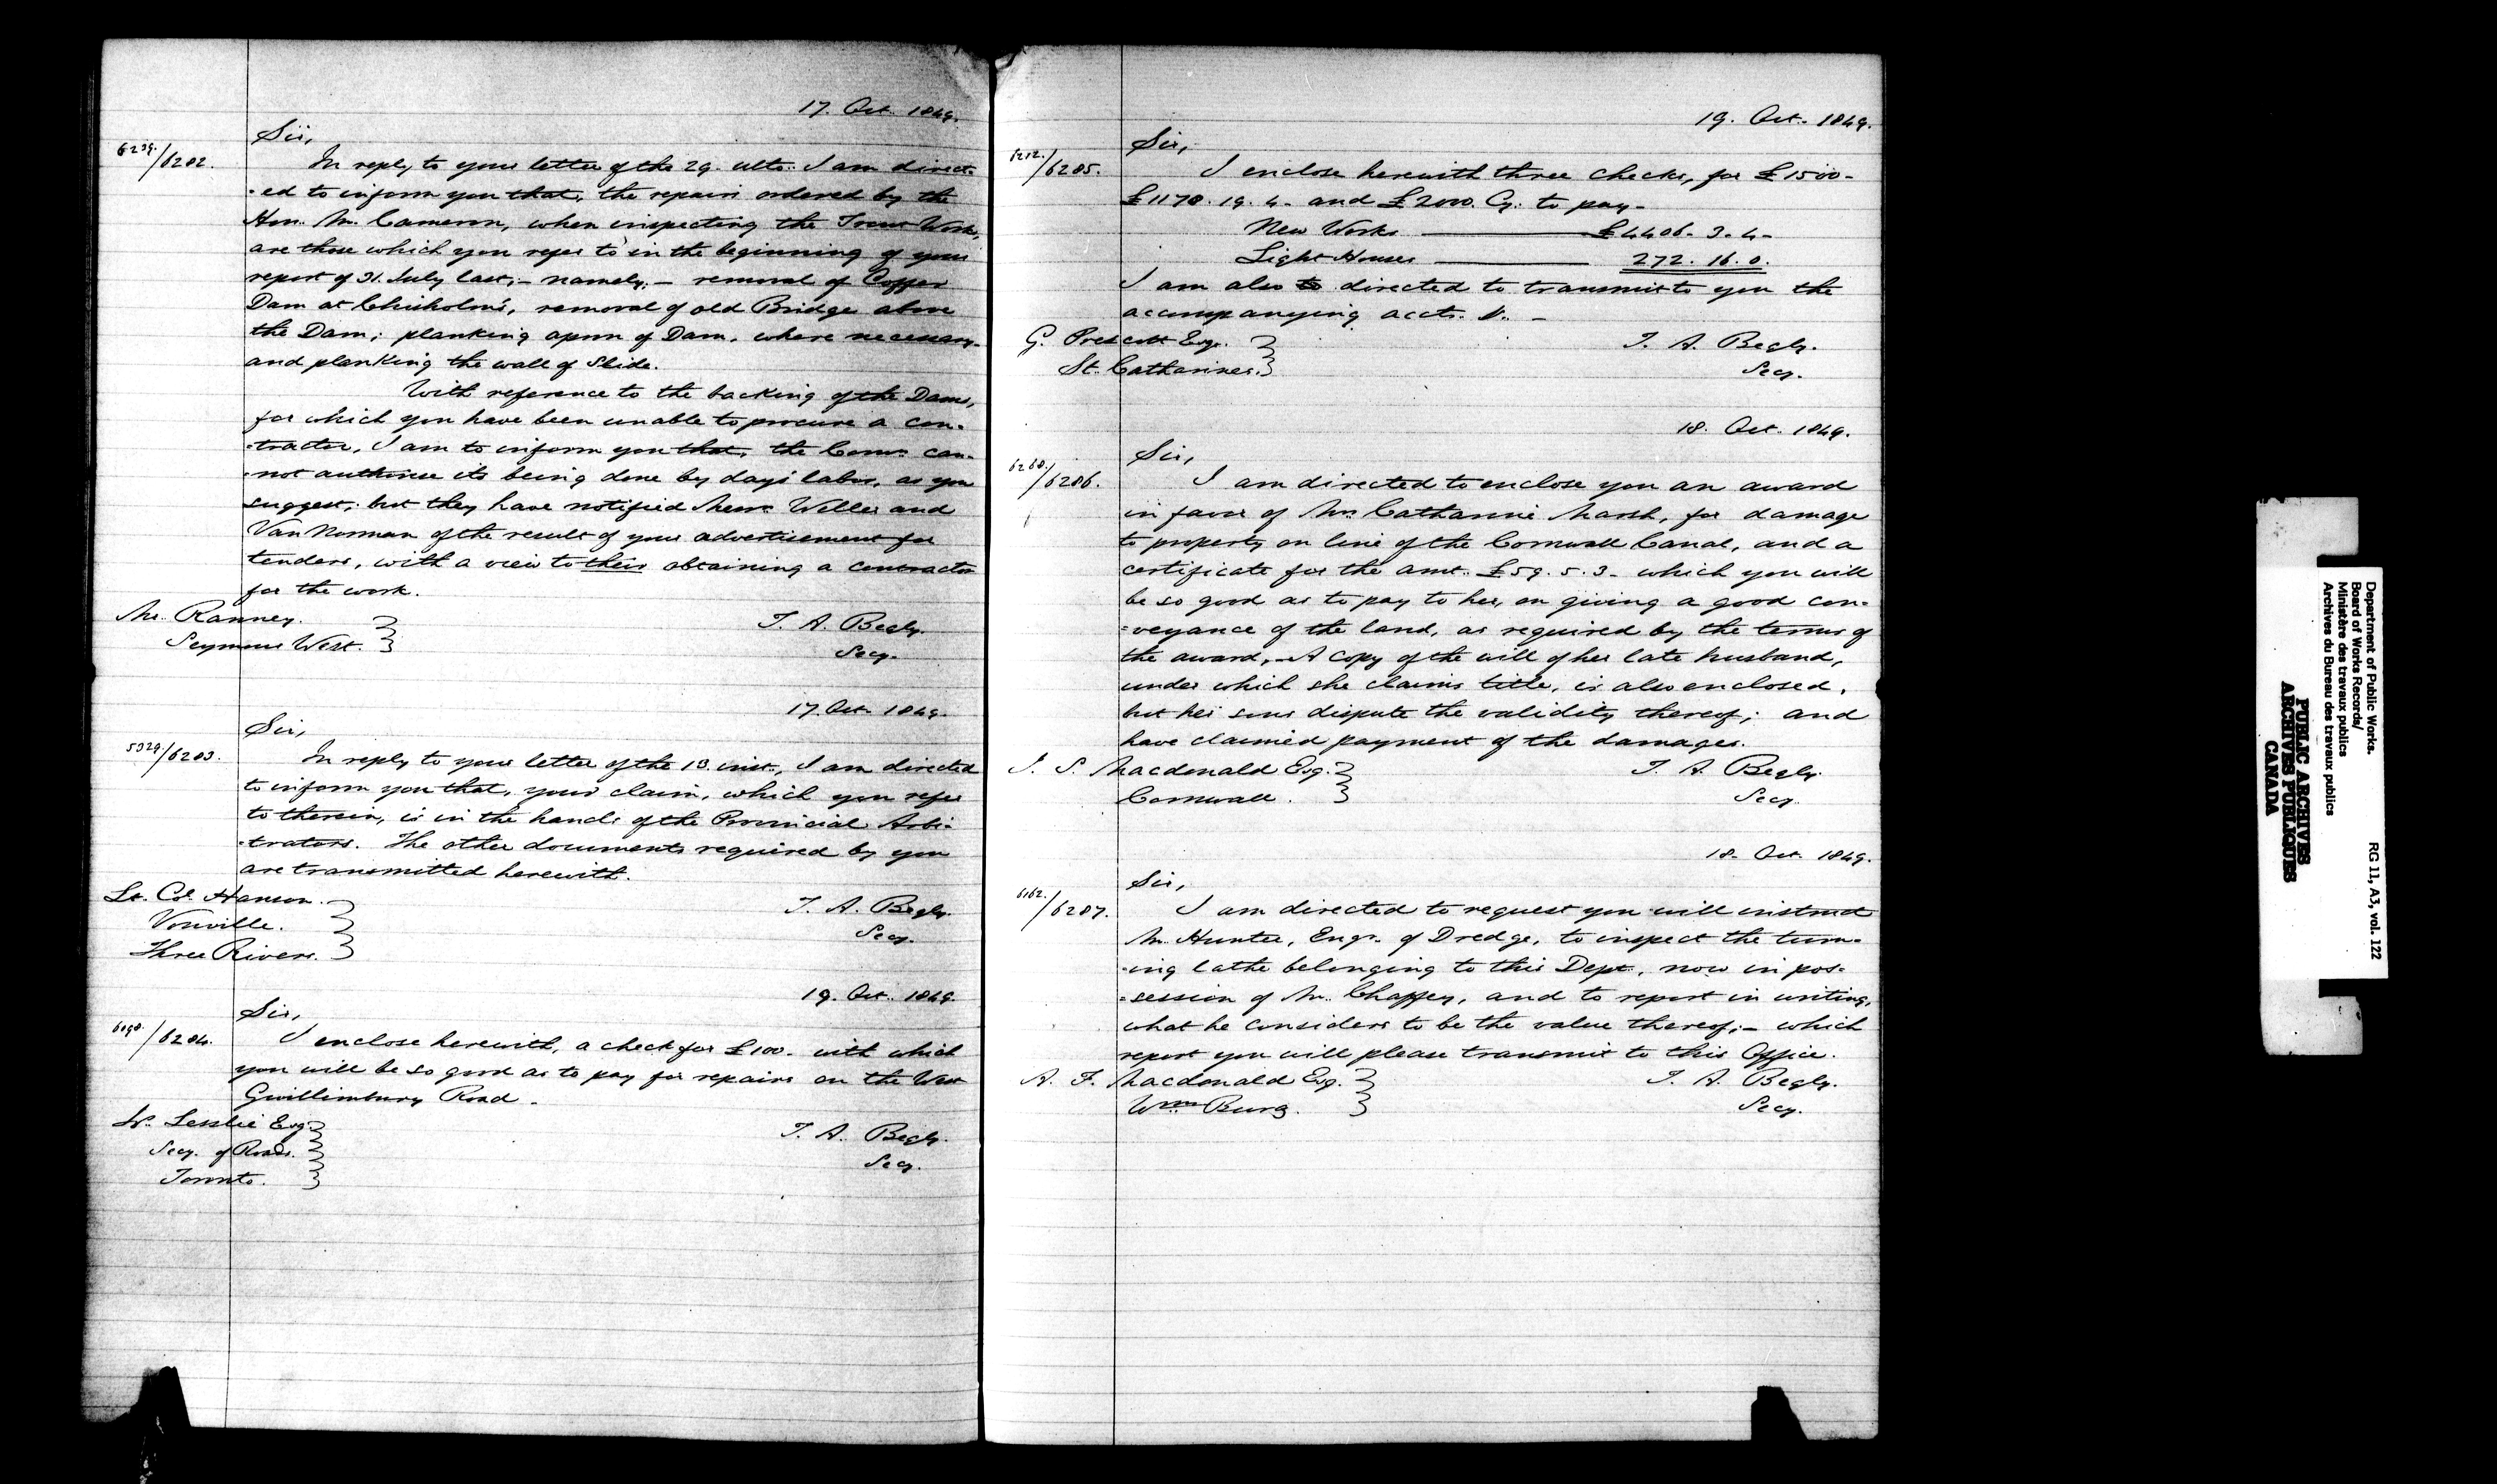 17. Oct. 1849.
Sir,
6239./6282.
In reply to your letter of the 29. ulto. I am direct-
-ed to inform you that, the repairs ordered by the
Hon. M. Cameron, when inspecting the Trent Works,
are those which you refer to in the beginning of your
report of 31. July last; - namely; - removal of Coffer
Dam at Chisholm's, removal of old Bridge above
the Dam; planking apron of Dam, where necessary
and planking the wall of Slide.
With reference to the backing of the Dams,
for which you have been unable to procure a con-
-tractor, I am to inform you that, the Comrs. can-
-not authorise its being done by days' labor, as you
suggest; but they have notified Messrs Weller and
Van Norman of the result of your advertisement for
tenders, with a view to their obtaining a contractor
for the work.
Mr. Ranney.
Seymour West.
T. A. Begly.
Secy.
17. Oct. 1849.
Sir,
5329./6283.
In reply to your letter of the 13. inst., I am directed
to inform you that, your claim, which you refer
to therein, is in the hands of the Provincial Arbi-
-trators. The other documents required by you
are transmitted herewith.
Lt. Col. Hanson.
Vonville.
Three Rivers.
T. A. Begly.
Secy.
19. Oct. 1849.
Sir,
6098./6284.
I enclose herewith, a check for £100. with which
you will be so good as to pay for repairs on the West
Gwillimbury Road.
W. Leslie Esq.
Secy. of Roads.
Toronto.
T. A. Begly.
Secy.
19. Oct. 1849.
Sir,
6212./6285.
I enclose herewith three checks, for £1500-
£1178. 19. 4. and £2000. Cy. to pay-
New Works £4406. 3. 4-
Light Houses 272. 16. 0.
I am also to directed to transmit to you the
accompanying accts.
G. Prescott Esq.
St. Catharines.
T. A. Begly.
Secy.
18. Oct. 1849.
Sir,
6268./6286.
I am directed to enclose you an award
in favor of Mrs. Catharine Marsh, for damage
to property on line of the Cornwall Canal, and a
certificate for the amt. £59. 5. 3 - which you will
be so good as to pay to her, on giving a good con-
-veyance of the land, as required by the terms of
the award, - A copy of the will of her late husband,
under which she claims title, is also enclosed,
but her sons dispute the validity thereof; and
have claimed payment of the damages.
J. S. Macdonald Esq.
Cornwall.
T. A. Begly.
Secy.
18. Oct. 1849.
Sir,
6162./6287.
I am directed to request you will instruct
Mr. Hunter, Engr. of Dredge, to inspect the turn-
-ing lathe belonging to this Dept., now in pos-
-session of Mr. Chaffey, and to report in writing,
what he considers to be the value thereof; - which
report you will please transmit to this Office.
A. F. Macdonald Esq.
Wmsburg.
T. A. Begly.
Secy.
Department of Public Works.
Board of Works Records/
Ministère des travaux publics
Archives du Bureau des travaux publics
RG 11, A3, vol. 122
PUBLIC ARCHIVES
ARCHIVES PUBLIQUES
CANADA